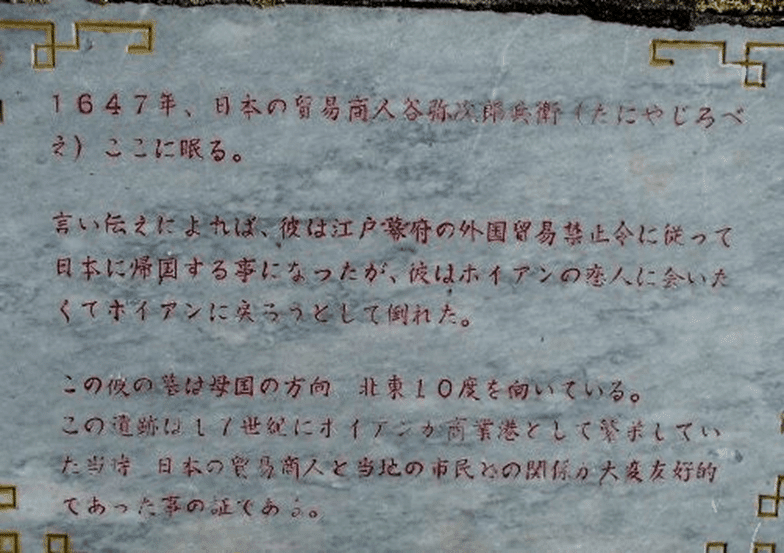 1647年、日本の貿易商人谷弥次郎兵衛(たにやじろべ
え)ここに眠る。
言い伝えによれば、彼は江戸幕府の外国貿易禁止令に従って
日本に帰国する事になったが、彼はホイアンの恋人に会いた
くてホイアンに戻ろうとして倒れた。
この彼の墓は母国の方向 北東10度を向いている。
この遺跡は17世紀にホイアンが商業港として繁栄してい
た当時 日本の貿易商人と当地の市民との関係が大変友好的
であった事の証である。